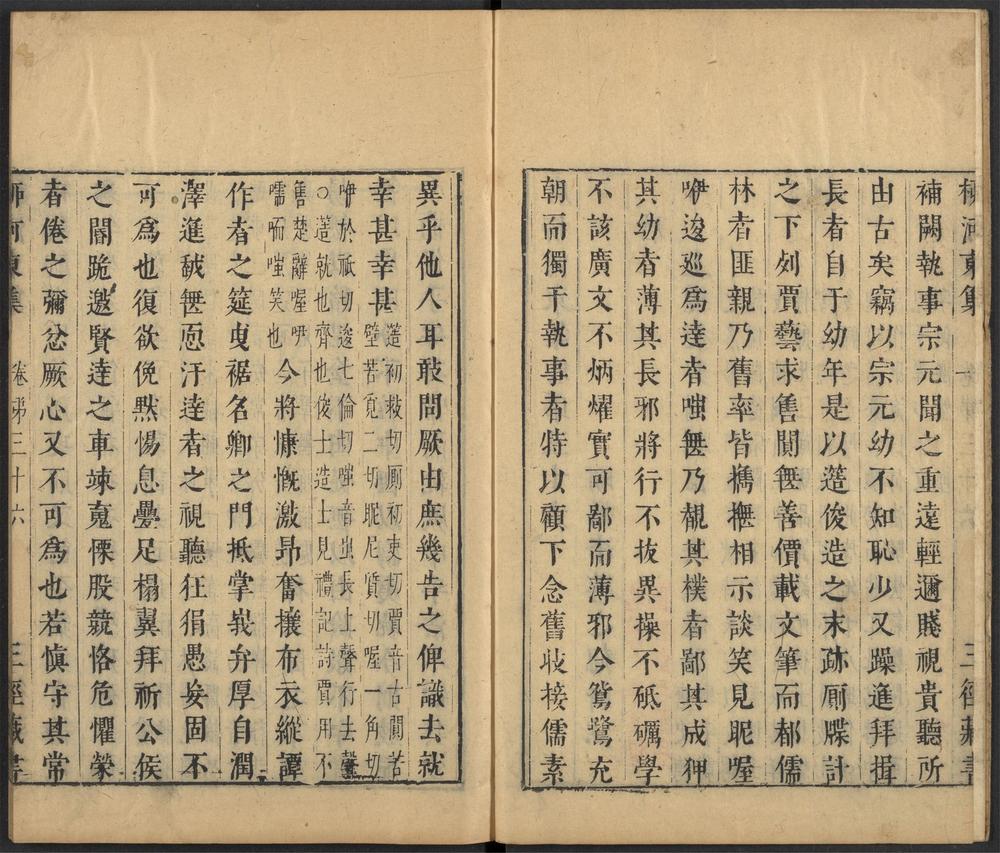 柳河東集
三徑藏書
補闕執事宗元聞之重遠輕邇賤視貴聽所
由古矣竊以宗元幼不知恥少又躁進拜揖
長者自于幼年是以簉俊造之末跡厠牒計
之下列賈藝求售閴無善價載文筆而都儒
林者匪親乃舊率皆攜撫相示談笑見昵喔
咿逡廵為達者嗤無乃覩其樸者鄙其成狎
其幼者薄其長邪將行不拔異操不砥礪學
不該廣文不炳燿實可鄙而薄邪今鴛鷺充
朝而獨干執事者特以顧下念舊收接儒素
異乎他人耳敢問厥由庶幾告之俾識去就
幸甚幸甚簉初救切厠初吏切賈音古閴苦
壁苦覓二切昵尼質切喔一角切
咿於祇切逡七倫切嗤音蚩長上聲行去聲
○簉就也齊也俊士造士見禮記詩賈用不
售楚辭喔咿
嚅唲嗤笑也今將慷慨激昂奮攘布衣縱譚
作者之筵曳裾名卿之門抵掌峩弁厚自潤
澤進越無恧汙達者之視聽狂狷愚妄固不
可為也復欲俛默惕息疊足榻翼拜祈公侯
之閽跪邀賢達之車竦䰟慄股兢恪危懼榮
者倦之彌忿厥心又不可為也若慎守其常
柳河東集
卷第三十六
三徑藏書